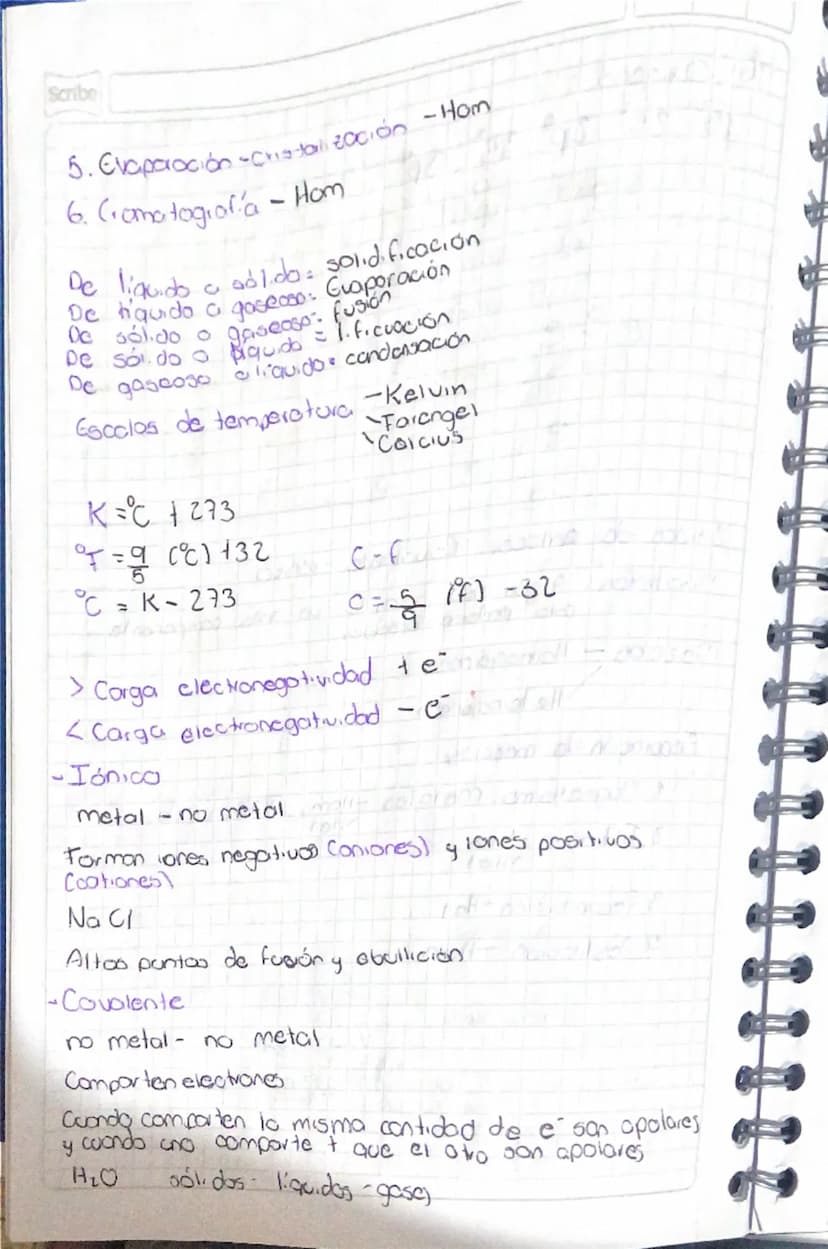 Scribe
5. Evaporación - Cristalización - Hom
6. Cromatografía - Hom
De líquido a sólido: solidificación
De líquido a gaseoso: Evaporación
De sólido a gaseoso: fusión
De sólido a líquido = lificuación
De gaseoso a líquido: condensación
Escalas de temperatura - Kelvin
\ Farangel
\ Calcius
K = °C + 273
°F = 9/5 (°C) + 32 C = F
°C = K - 273 C = 5/9 (°F) - 32
> Carga electronegatividad + e⁻
< Carga electronegatividad - e⁻
- Iónico
metal - no metal
Forman iones negativos (aniones) y iones positivos
(cationes)
NaCl
Altos puntos de fusión y ebullición
- Covalente
no metal - no metal
Comparten electrones
Cuando comparten la misma cantidad de e⁻ son apolares
y cuando uno comparte + que el otro son apolares
H₂O sólidos - líquidos - gases